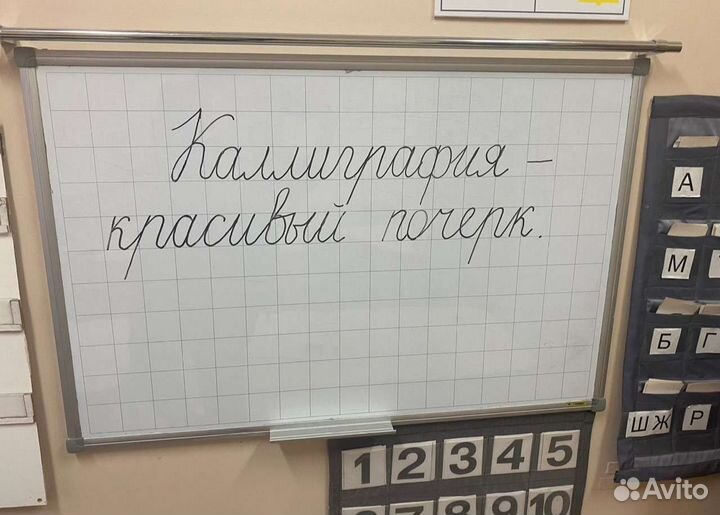 Каллиграфия –
красивый почерк.
А
М
Б Г
ШЖ Р
1 2 3 4 5
6 7 8 9 10
Avito